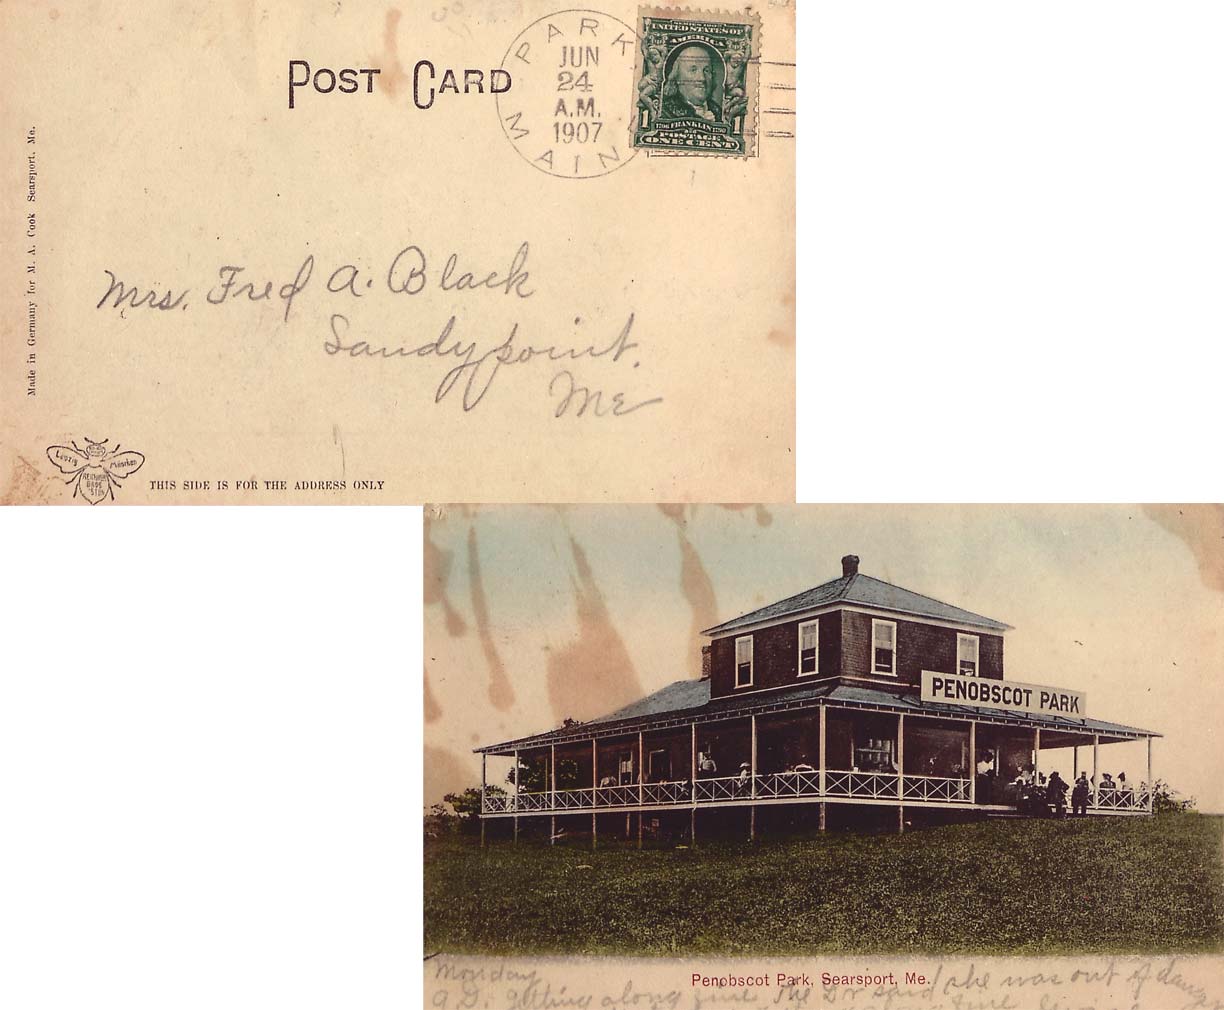 POST CARD
PARK
JUN
24
A.M.
1907
MAIN
SERIES 1902
UNITED STATES OF
AMERICA
1 1
1706 FRANKLIN 1790
POSTAGE
ONE CENT
Made in Germany for M. A. Cook Searsport. Me.
Mrs. Fred A. Black
Sandypoint.
Me
Leipzig München
THIS SIDE IS FOR THE ADDRESS ONLY
PENOBSCOT PARK
Penobscot Park, Searsport, Me.
Monday she was out of
getting along fine The Dr said